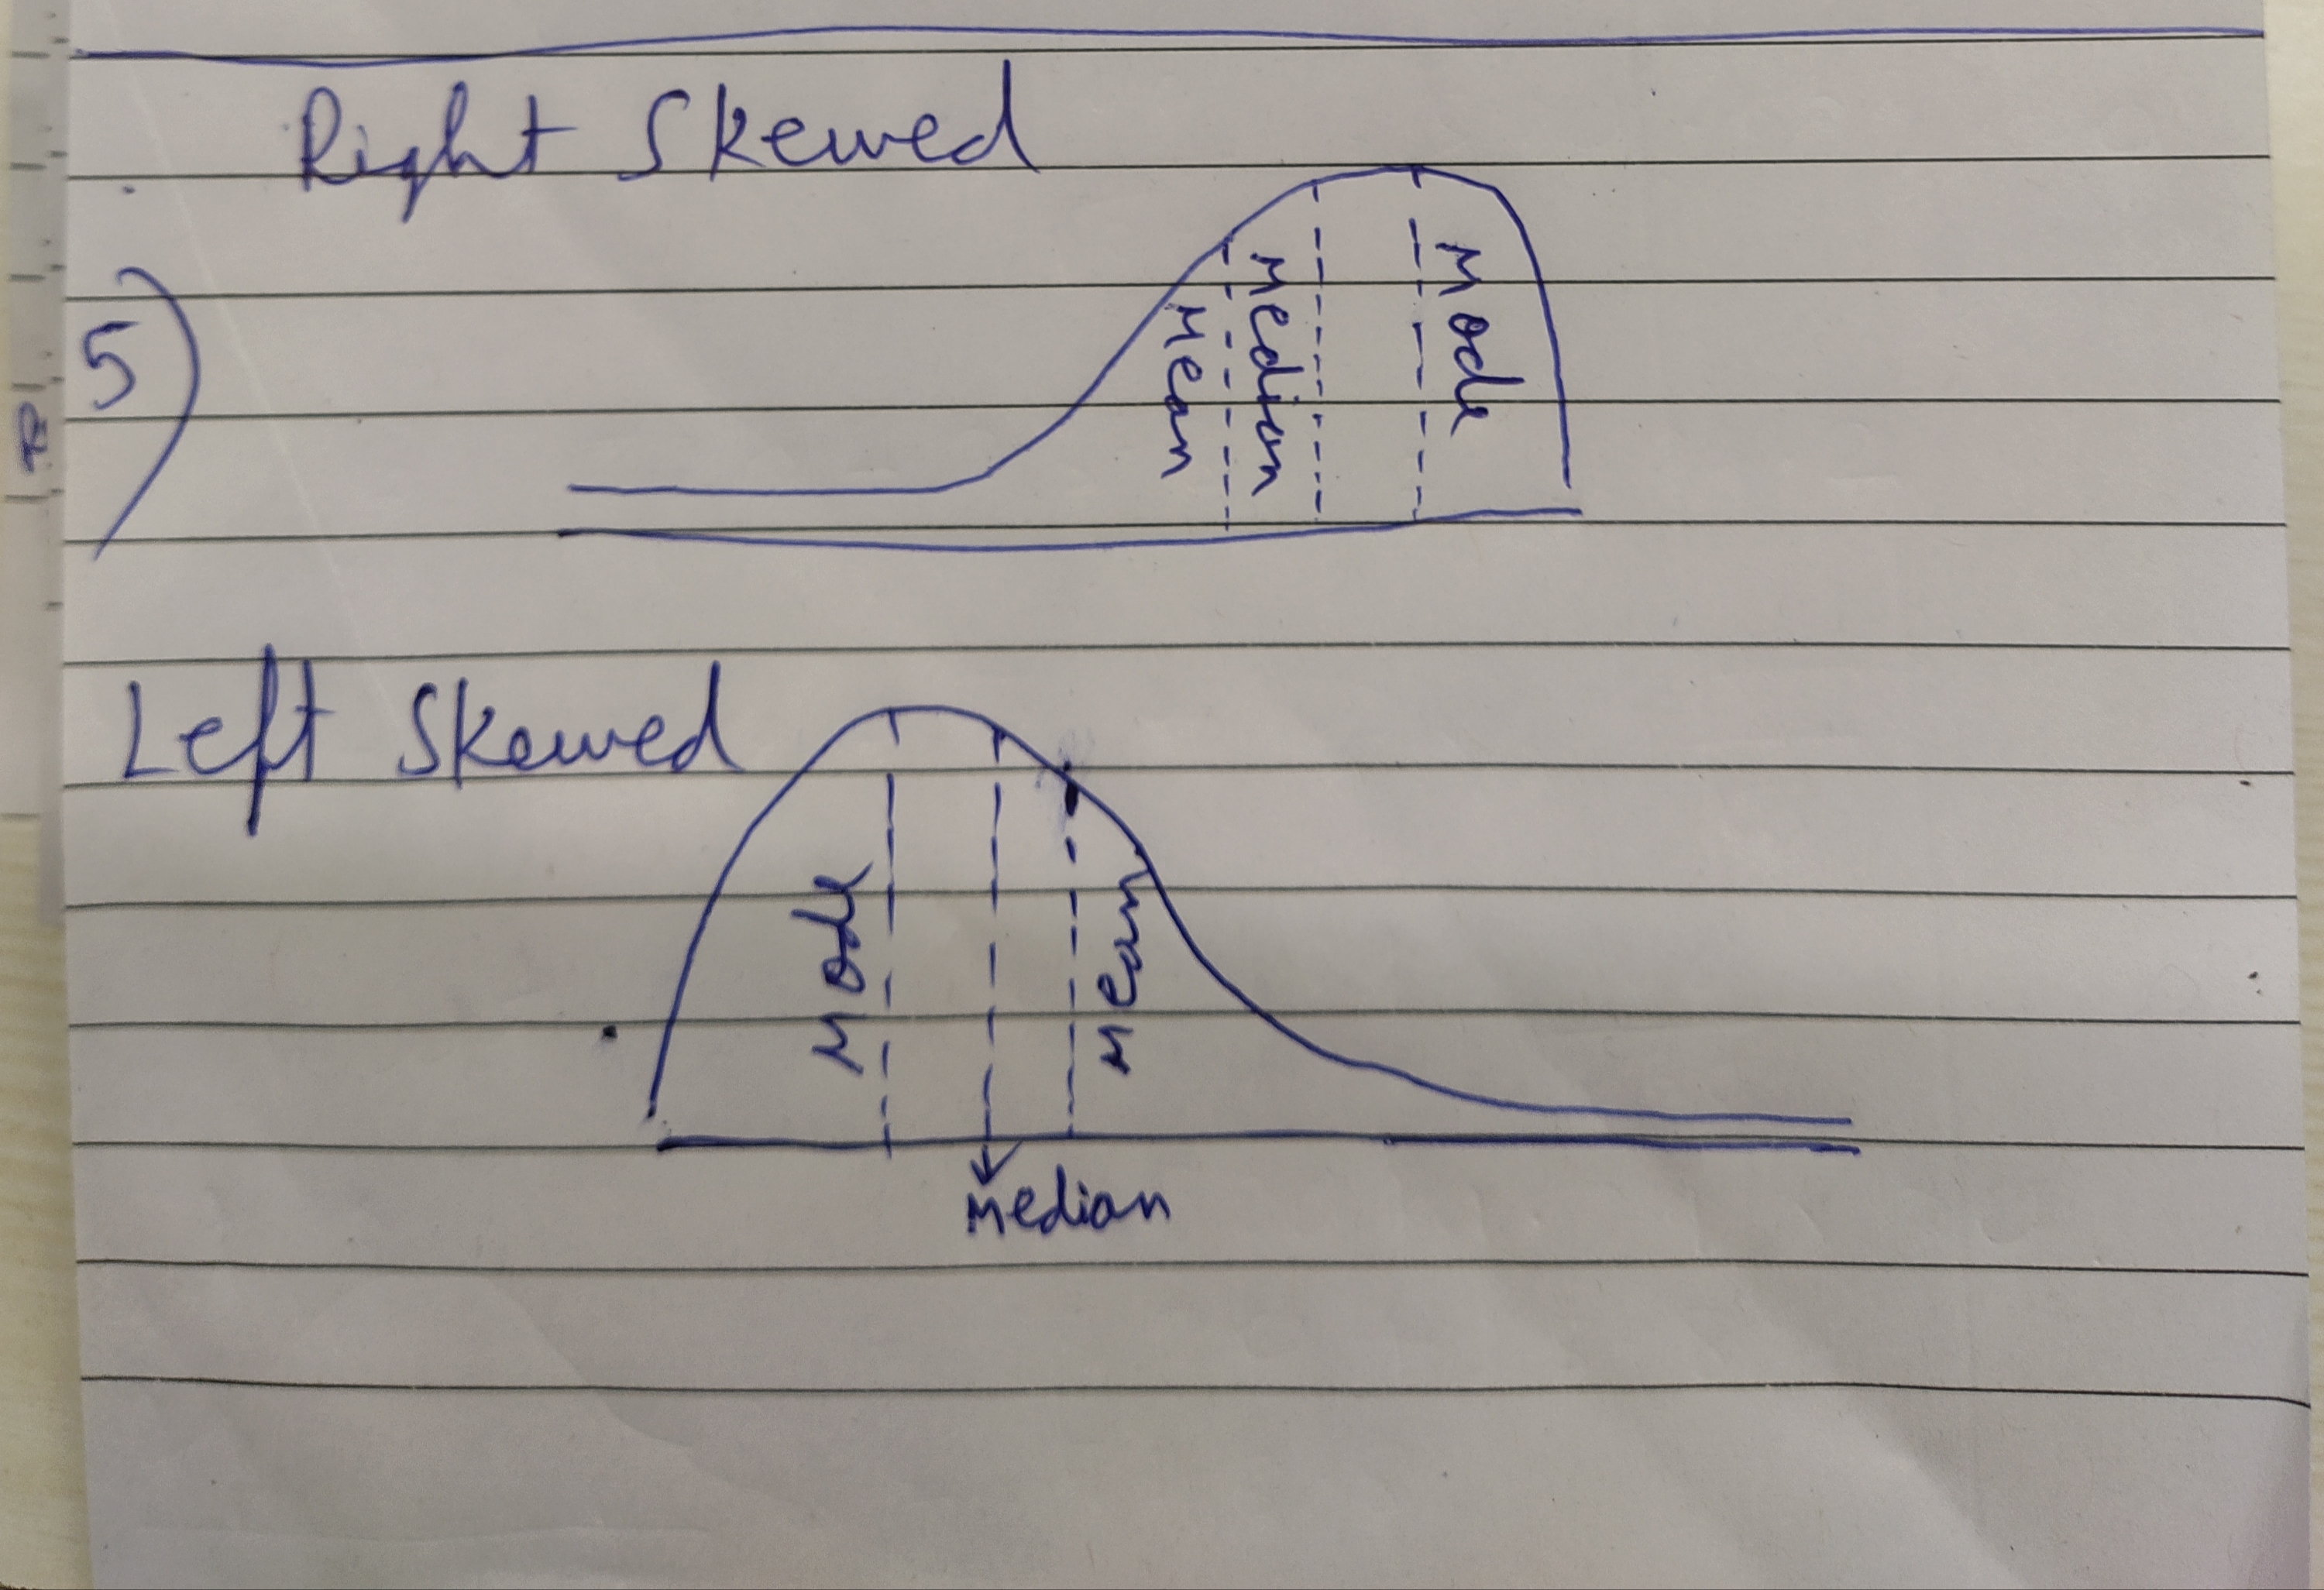 Right Skewed
5)
Mean
Median
Mode
Left Skewed
Mode
Mean
Median